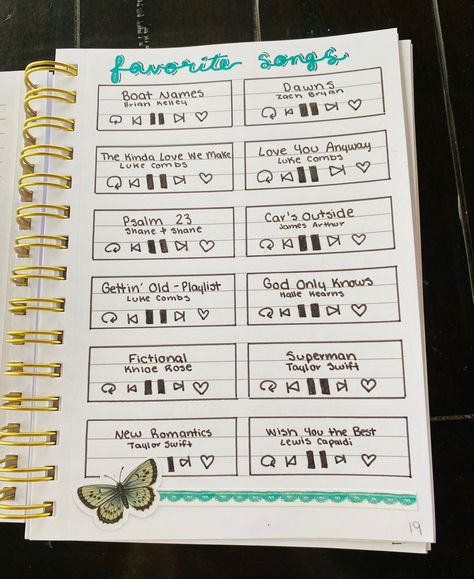 favorite songs
Boat Names
Brian Kelley
Dawns
Zach Bryan
The Kinda Love We Make
Luke Combs
Love You Anyway
Luke Combs
Psalm 23
Shane + Shane
Car's Outside
James Arthur
Gettin' Old - Playlist
Luke Combs
God Only Knows
Halle Kearns
Fictional
Khloe Rose
Superman
Taylor Swift
New Romantics
Taylor Swift
Wish You the Best
Lewis Capaldi
19